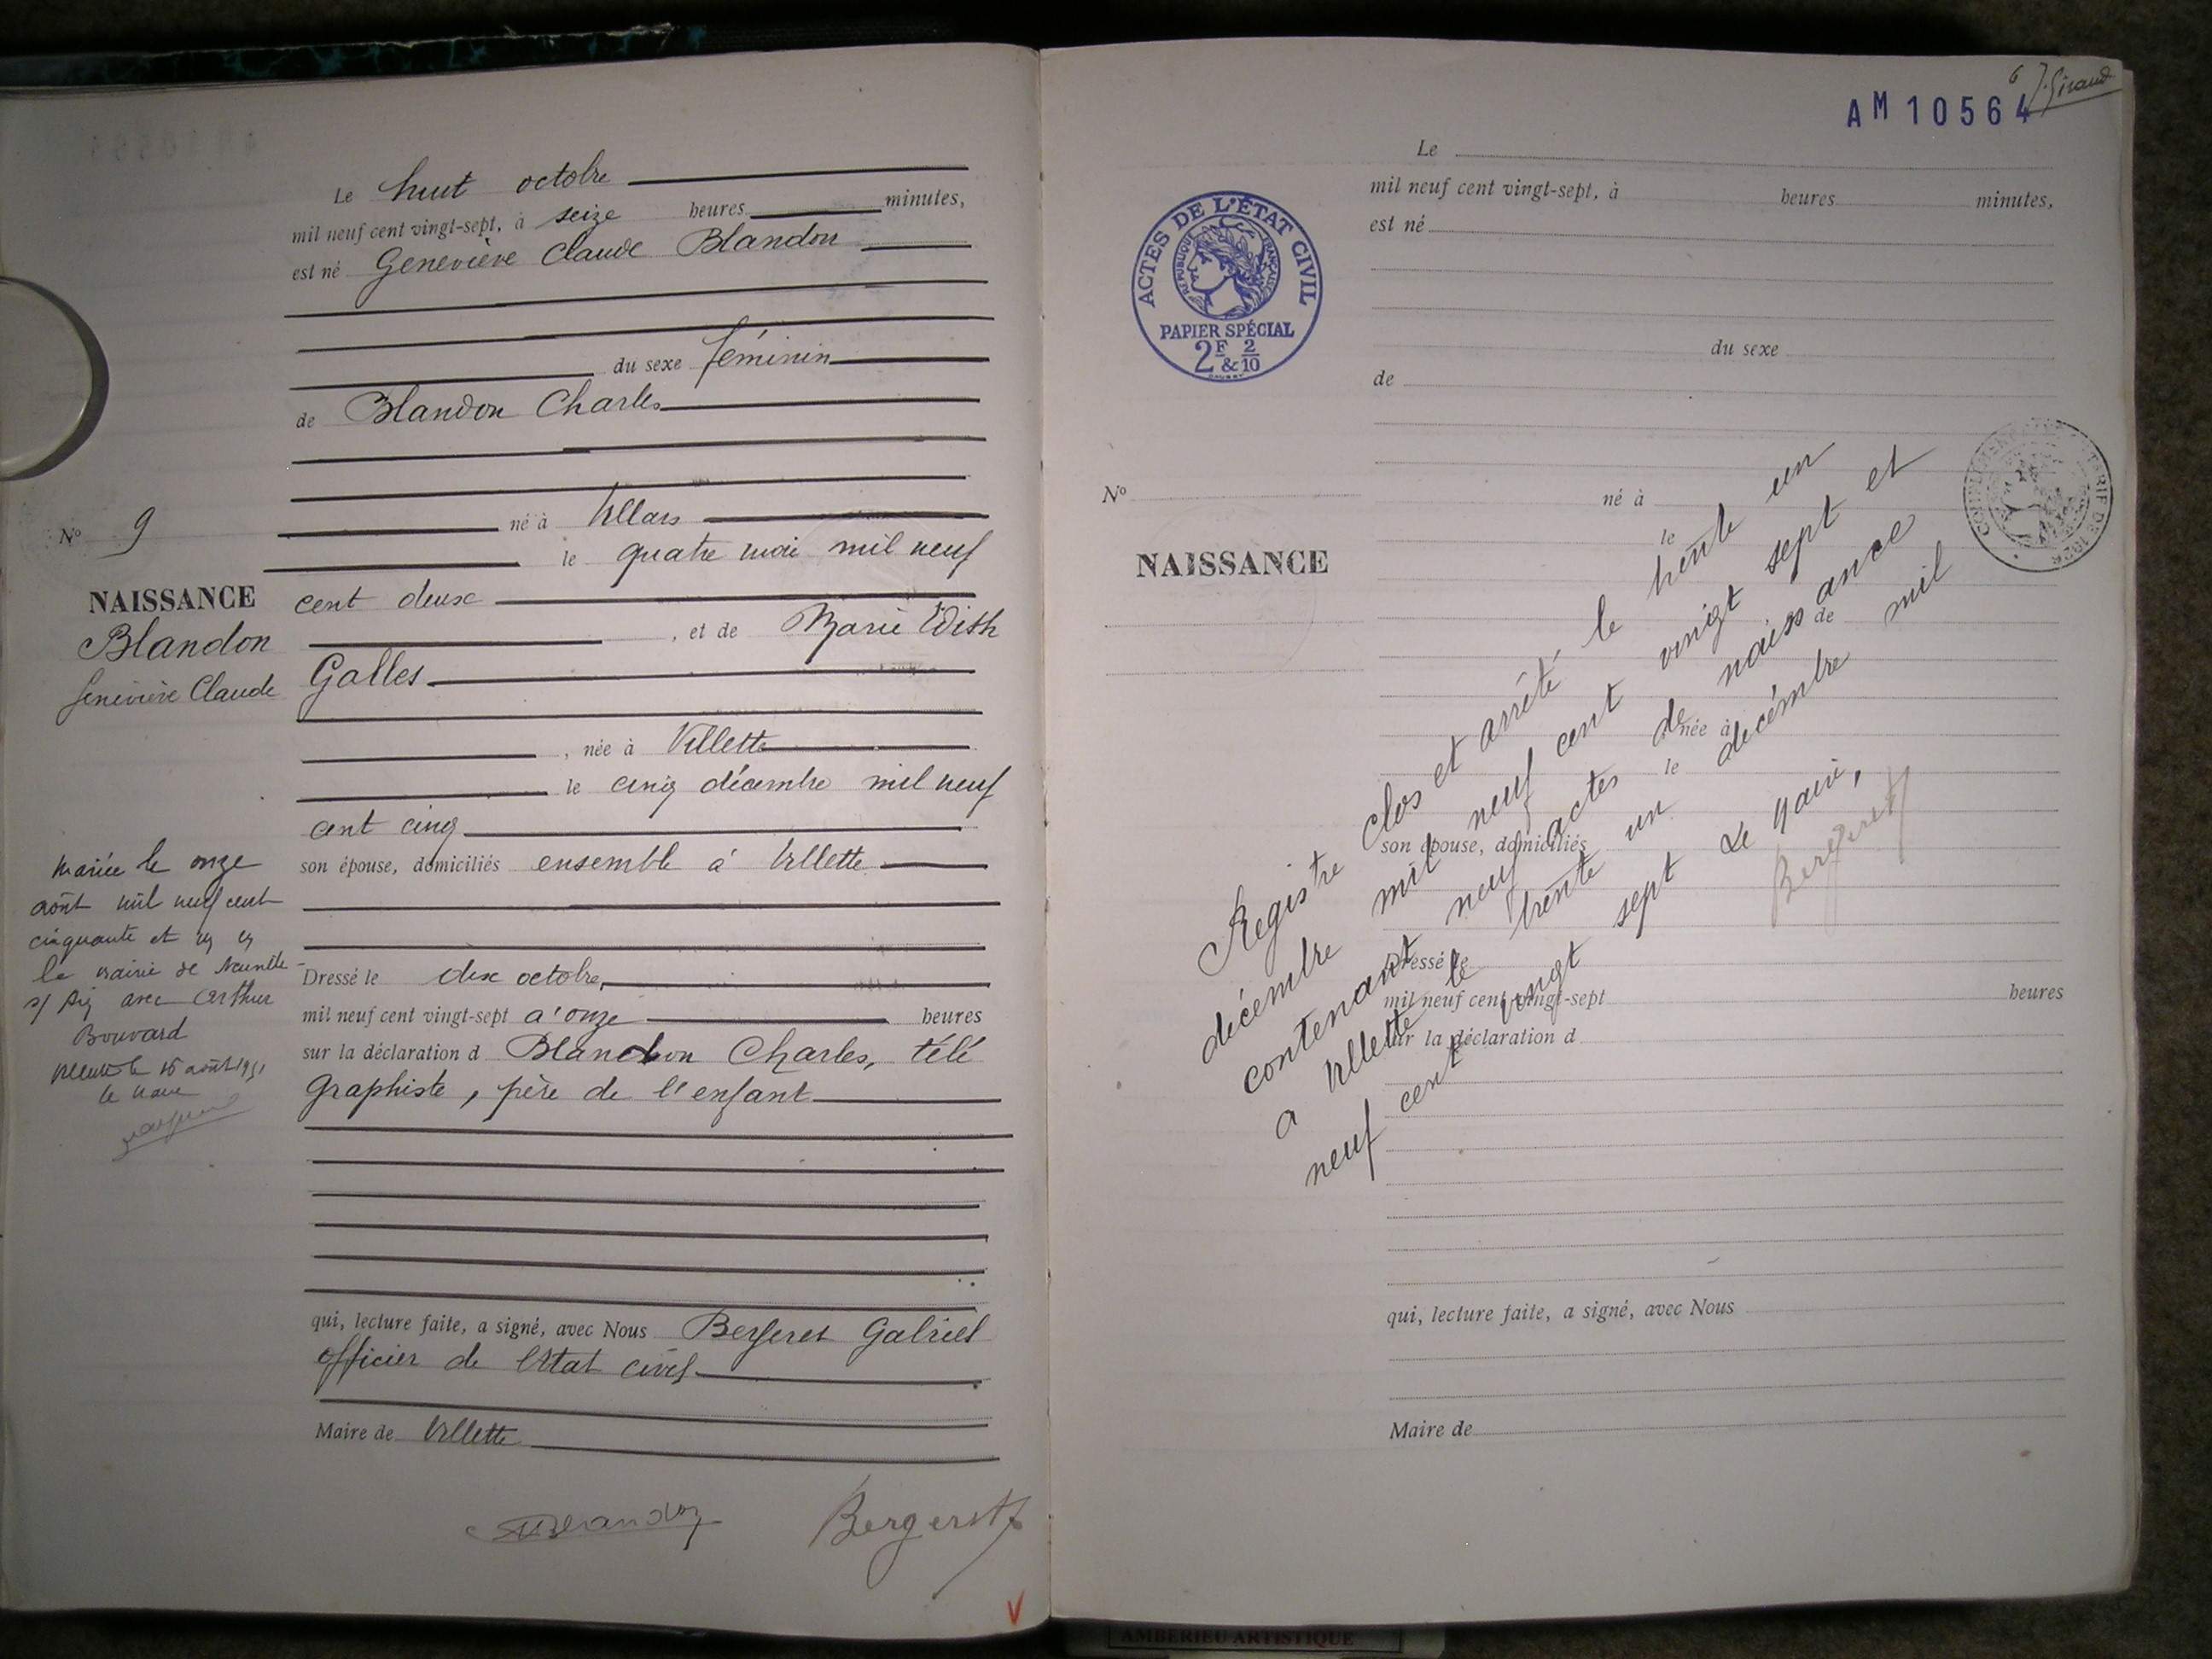 Le huit octobre
mil neuf cent vingt-sept, à seize heures minutes,
est né Geneviève Claude Blandon
du sexe féminin
de Blandon Charles
né à Villars
le quatre mai mil neuf
cent deux
, et de Marie Edith
Galles
, née à Villette
le cinq décembre mil neuf
cent cinq
son épouse, domiciliés ensemble à Villette
Dressé le dix octobre,
mil neuf cent vingt-sept a' onze heures
sur la déclaration d Blandon Charles, télé
graphiste, père de l'enfant
qui, lecture faite, a signé, avec Nous Bergeret Gabriel
officier de l'état civil
Maire de Villette
Blandon
Bergeret
V
No 9
NAISSANCE
Blandon
Geneviève Claude
Mariée le onze
août mil neuf cent
cinquante et un en
la mairie de Neuville
s/ Ain avec Arthur
Bouvard
Villette le 16 août 1951
le Maire
6 J. Giraud
AM 10564
ACTES DE L'ÉTAT CIVIL
RÉPUBLIQUE FRANÇAISE
PAPIER SPÉCIAL
2F & 2/10
Le
mil neuf cent vingt-sept, à heures minutes,
est né
du sexe
de
No
NAISSANCE
né à
le
, et de
née à
le
son épouse, domiciliés
Dressé le
mil neuf cent vingt-sept heures
sur la déclaration d
qui, lecture faite, a signé, avec Nous
Maire de
Registre clos et arrêté le trente un
décembre mil neuf cent vingt sept et
contenant neuf actes de naissance
a Villette le trente un decémbre mil
neuf cent vingt sept Le Maire,
Bergeret
AMBERIEU ARTISTIQUE